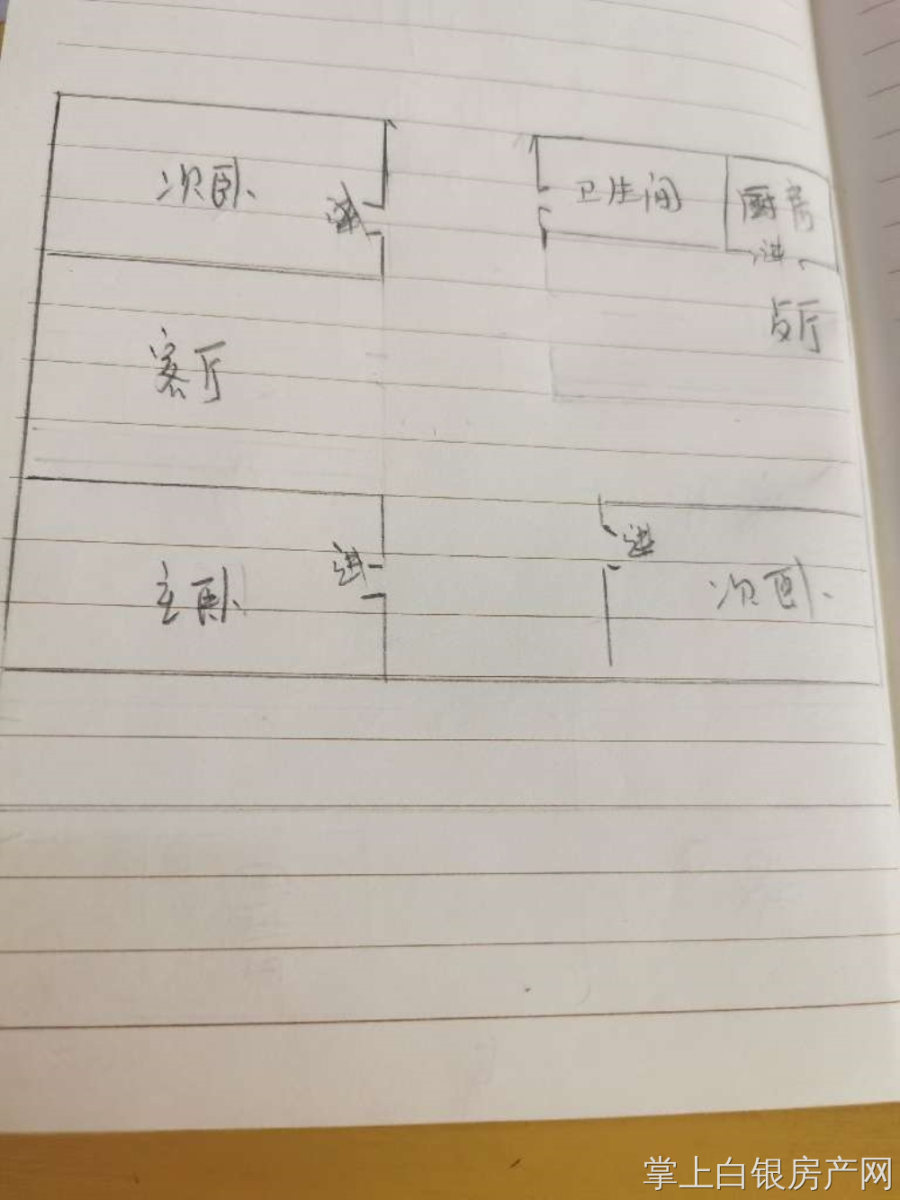 次卧
进
卫生间
厨房
进
客厅
歺厅
主卧
进
进
次卧
掌上白银房产网